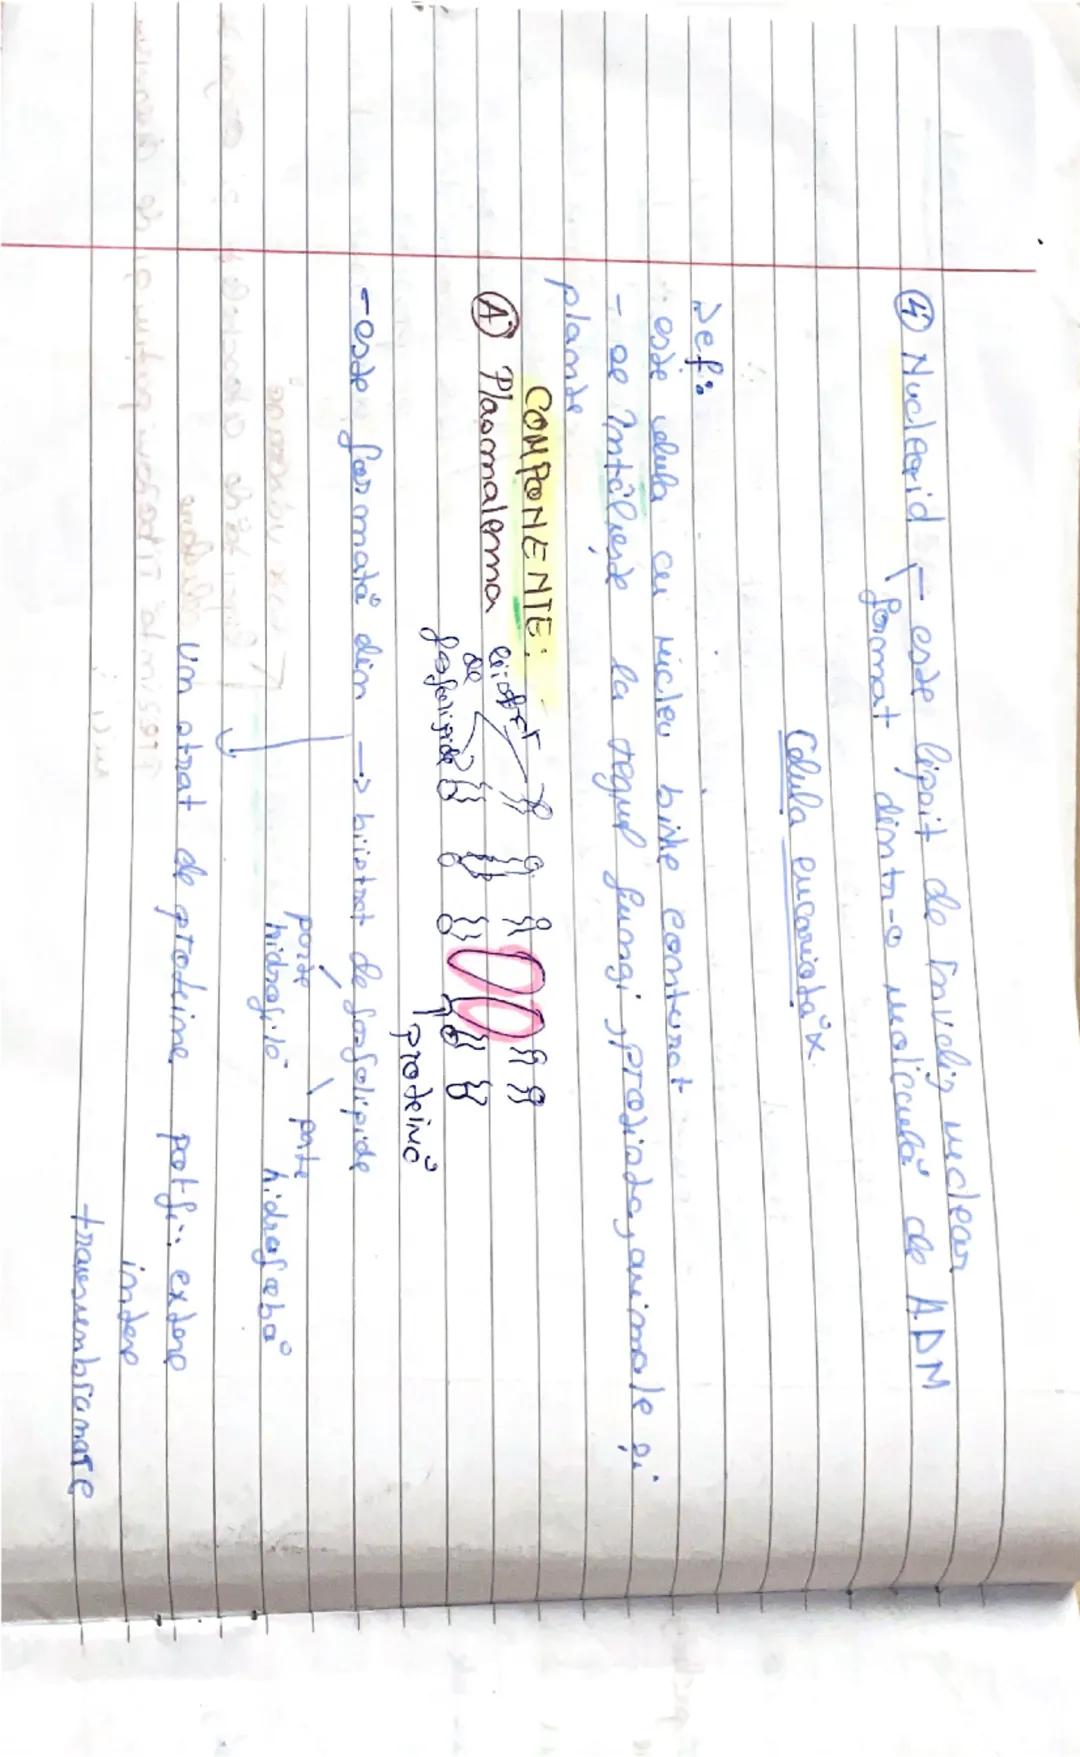 ④ Nucleorid — este lipsit de înveliș nuclear
format dintr-o moleculă de ADN
Celula eucariotă
Def:
- este celula cu nucleu bine conturat
- se întâlnește la regnul fungi, protiste, animale și
plante
COMPONENTE:
Ⓐ Plasmalema
bistrat
de
fosfolipide
proteină
- este formată din → bistrat de fosfolipide
parte hidrofilă
parte hidrofobă
Un strat de proteine pot fi: externe
interne
transmembranare